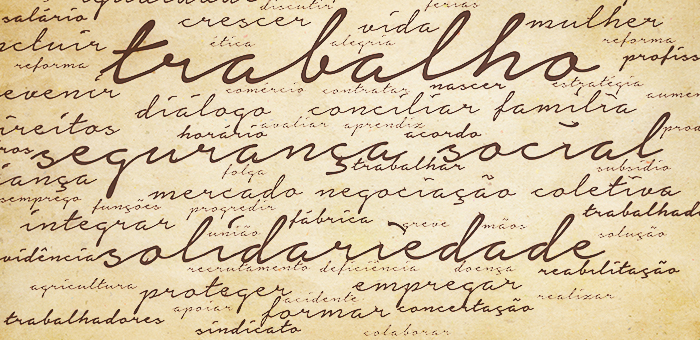 discutir férias
salário crescer vida mulher
ética alegria reforma
reforma trabalho profiss
comércio contratar nascer estratégia
evenir diálogo conciliar família aumen
ireitos horário avaliar aprendiz acordo
segurança social
folga trabalhar subsídio
iança mercado negociação coletiva
semprego funções progredir
integrar união fábrica greve mãos trabalhad
solução
vidência solidariedade
recrutamento deficiência doença reabilitação
agricultura proteger empregar
acidente realizar
apoiar formar concertação
trabalhadores sindicato colaborar